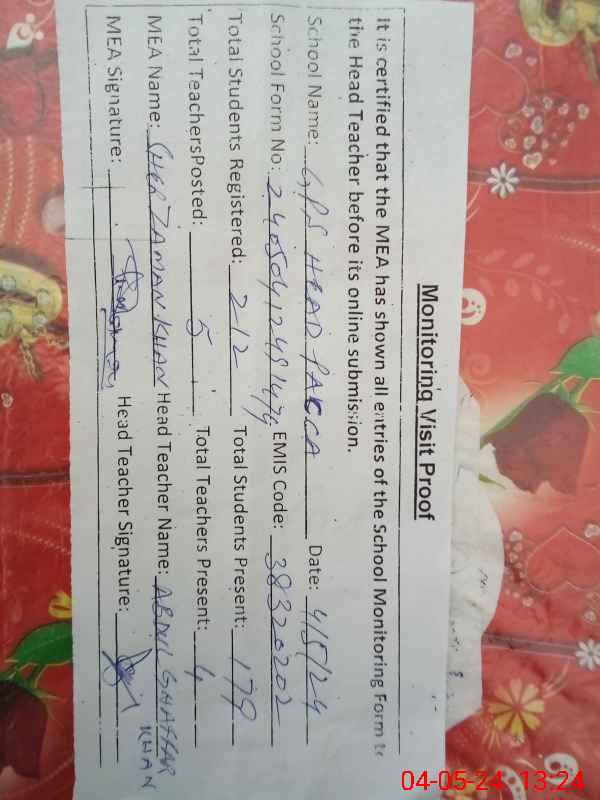 Monitoring Visit Proof
It is certified that the MEA has shown all entries of the School Monitoring Form to
the Head Teacher before its online submission.
School Name: GPS HEAD PACCA Date: 4/5/24
School Form No: EMIS Code: 38320202
Total Students Registered: 212 Total Students Present: 179
Total TeachersPosted: 5 Total Teachers Present: 4
MEA Name: SHER ZAMAN KHAN Head Teacher Name: ABDUL GHAFFAR KHAN
MEA Signature: Head Teacher Signature:
04-05-24 13:24